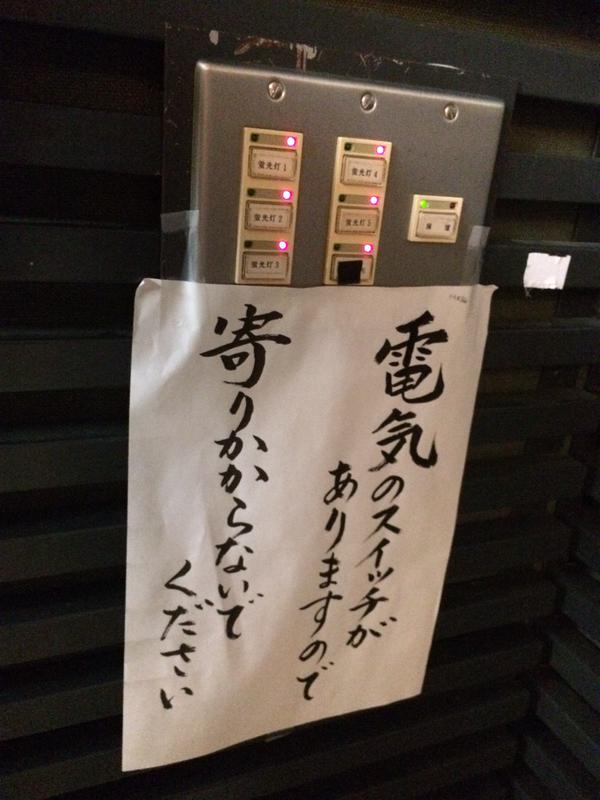 蛍光灯1
蛍光灯2
蛍光灯3
蛍光灯4
蛍光灯5
電気のスイッチが
ありますので
寄りかからないで
ください